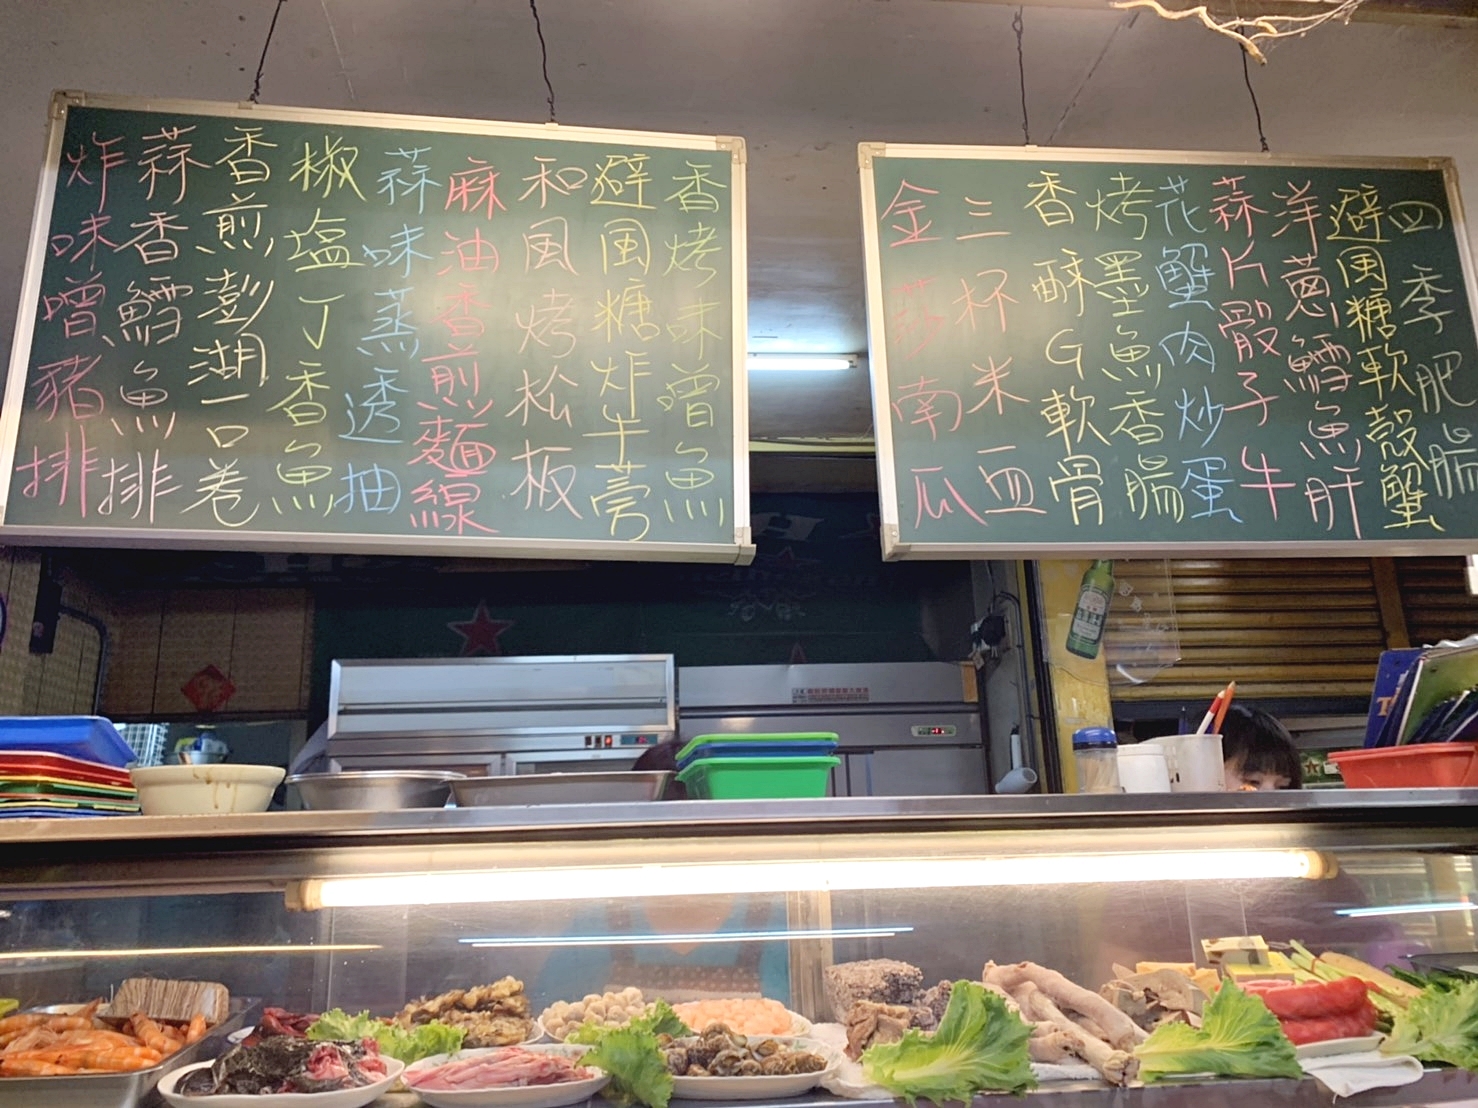 四季肥腸
避風糖軟殼蟹
洋蔥鱈魚肝
蒜片骰子牛
花蟹肉炒蛋
烤墨魚香腸
香酥G軟骨
三杯米血
金莎南瓜
香烤味噌魚
避風糖炸牛蒡
和風烤松板
麻油香煎麵線
蒜味蒸透抽
椒塩丁香魚
香煎澎湖一口卷
蒜香鱈魚排
炸味噌豬排